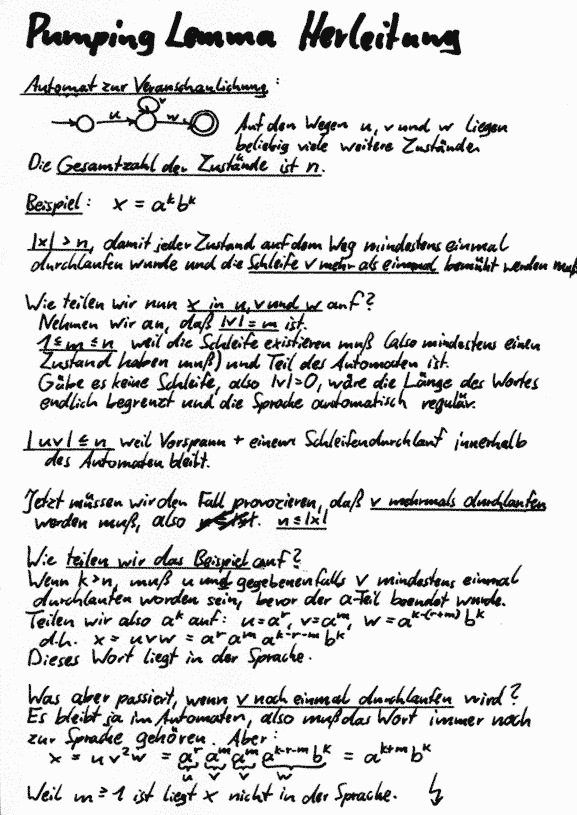 Pumping Lemma Herleitung
Automat zur Veranschaulichung:
u v w
Auf den Wegen u, v und w liegen
beliebig viele weitere Zustände
Die Gesamtzahl der Zustände ist n.
Beispiel: x = aᵏbᵏ
|x| > n, damit jeder Zustand auf dem Weg mindestens einmal
durchlaufen wurde und die Schleife v mehr als einmal bemüht werden muß
Wie teilen wir nun x in u, v und w auf?
Nehmen wir an, daß |v| = m ist.
1 ≤ m ≤ n weil die Schleife existieren muß (also mindestens einen
Zustand haben muß) und Teil des Automaten ist.
Gäbe es keine Schleife, also |v|=0, wäre die Länge des Wortes
endlich begrenzt und die Sprache automatisch regulär.
|uv| ≤ n weil Vorspann + einem Schleifendurchlauf innerhalb
des Automaten bleibt.
Jetzt müssen wir den Fall provozieren, daß v mehrmals durchlaufen
werden muß, also n ≤ |x|
Wie teilen wir das Beispiel auf?
Wenn k > n, muß u und gegebenenfalls v mindestens einmal
durchlaufen worden sein, bevor der a-Teil beendet wurde.
Teilen wir also aᵏ auf: u = aʳ, v = aᵐ, w = aᵏ⁻⁽ʳ⁺ᵐ⁾ bᵏ
d.h. x = uvw = aʳ aᵐ aᵏ⁻ʳ⁻ᵐ bᵏ
Dieses Wort liegt in der Sprache.
Was aber passiert, wenn v noch einmal durchlaufen wird?
Es bleibt ja im Automaten, also muß das Wort immer noch
zur Sprache gehören. Aber:
x = uv²w = aʳ aᵐ aᵐ aᵏ⁻ʳ⁻ᵐ bᵏ = aᵏ⁺ᵐ bᵏ
u v v w
Weil m ≥ 1 ist liegt x nicht in der Sprache.